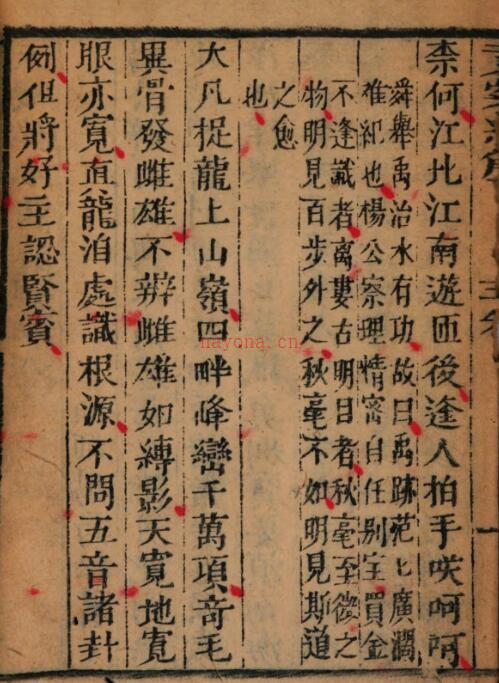 柰何江北江南遊匝後逢人拍手咲呵呵
舜舉禹治水有功故曰禹跡茫匕廣濶
难祀也楊公察理情宻自任别宝買金
不逢識者離婁古明目者秋毫至微之
物明見百步外之秋毫不如明見斯道
之愈
也
大凡捉龍上山嶺四畔峰巒千萬項竒毛
異骨發雌雄不辨雌雄如縛影天寛地寛
眼亦寛直龍泊處識根源不問五音諸卦
例但將好主認賢賓
nayona.cn